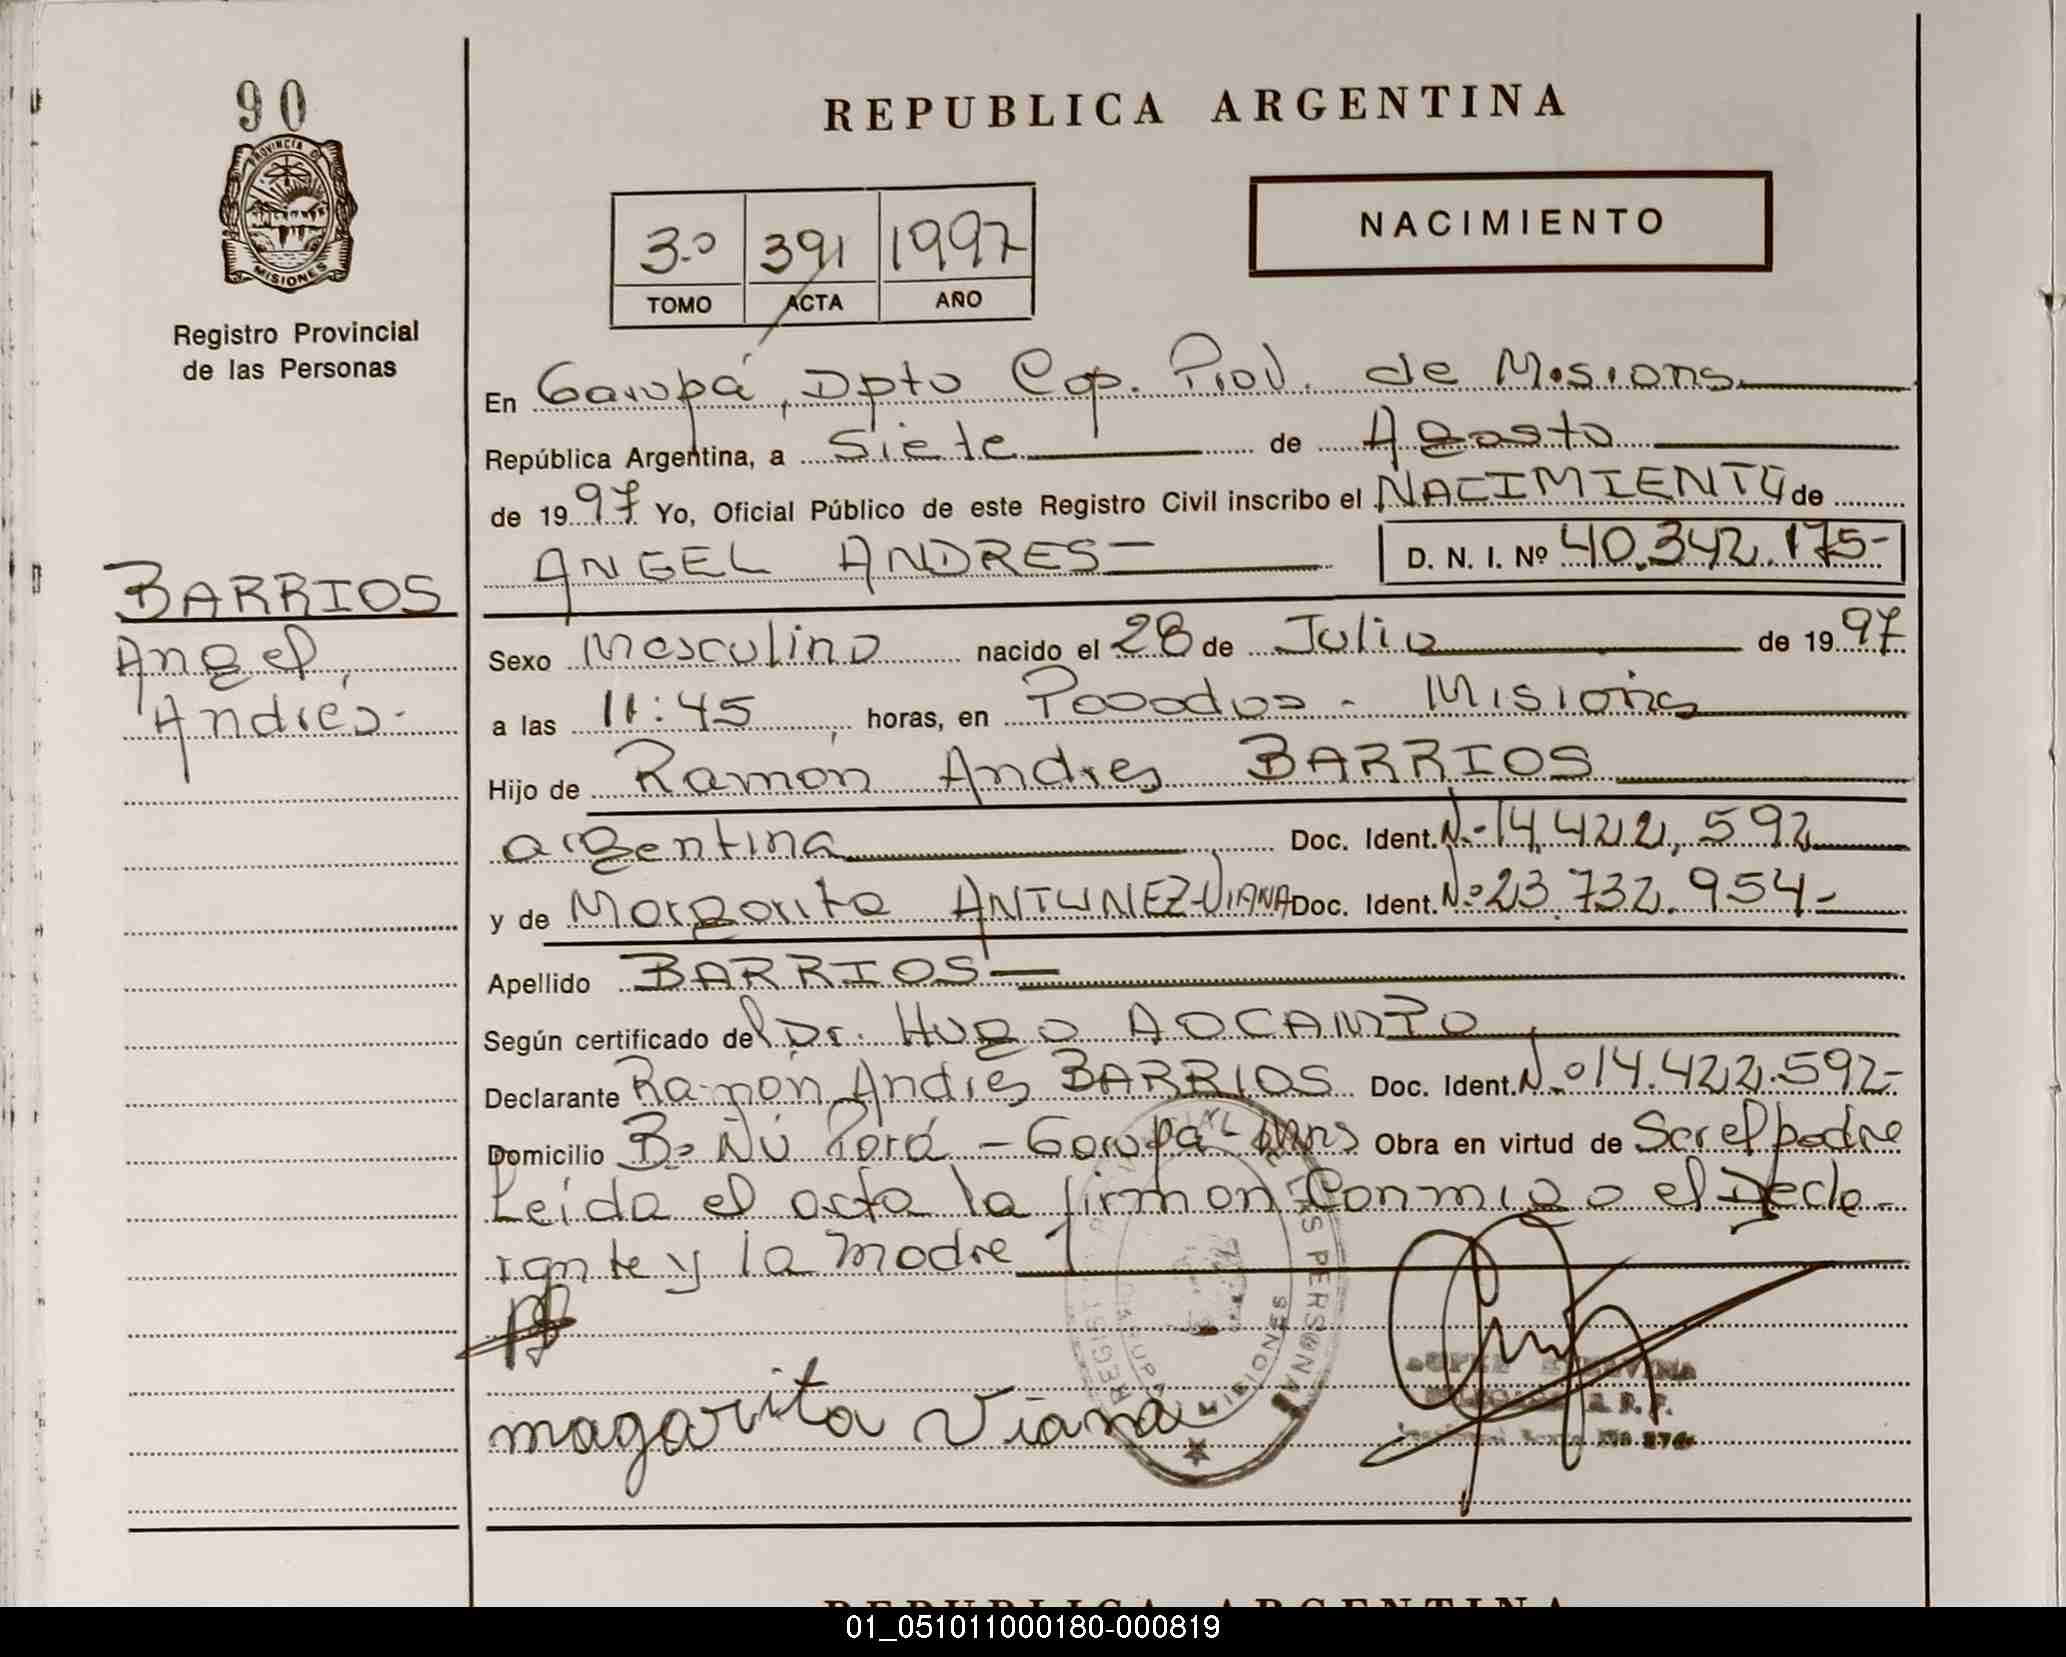 90
PROVINCIA D
MISIONES
Registro Provincial
de las Personas
BARRIOS
Angel,
Andrés.-
REPUBLICA ARGENTINA
NACIMIENTO
3.º 391 1997
TOMO ACTA AÑO
En Garupá, Dpto Cap. Prov. de Misiones
República Argentina, a Siete de Agosto
de 1997 Yo, Oficial Público de este Registro Civil inscribo el NACIMIENTO de
ANGEL ANDRES — D. N. I. Nº 40.342.175-
Sexo Masculino nacido el 28 de Julio de 1997
a las 11:45 horas, en Posadas - Misiones
Hijo de Ramón Andres BARRIOS
argentina Doc. Ident. N.º 14.422.592
y de Margarita ANTUNEZ-VIANA Doc. Ident. Nº 23.732.954-
Apellido BARRIOS —
Según certificado del Dr. Hugo AOCAMPO
Declarante Ramón Andrés BARRIOS Doc. Ident. N.º 14.422.592-
Domicilio Bº Ñú Porá - Garupá - Mns Obra en virtud de Ser el padre
Leída el acta la firman conmigo el Decla-
rante y la madre
magarita Viana
REGIST PERSONA
GARUPA MISIONES
REPUBLICA ARGENTINA
01_051011000180-000819